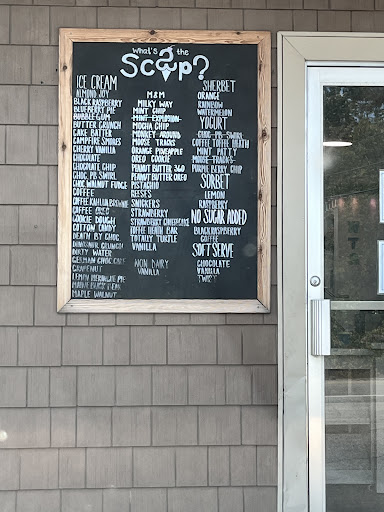 What's the
Scoop?
ICE CREAM
ALMOND JOY
BLACK RASPBERRY
BLUEBERRY PIE
BUBBLE GUM
BUTTER CRUNCH
CAKE BATTER
CAMPFIRE SMORES
CHERRY VANILLA
CHOCOLATE
CHOCOLATE CHIP
CHOC. PB SWIRL
CHOC. WALNUT FUDGE
COFFEE
COFFEE KAHLUA BROWNIE
COFFEE OREO
COOKIE DOUGH
COTTON CANDY
DEATH BY CHOC.
DINOSAUR CRUNCH
DIRTY WATER
GERMAN CHOC CAKE
GRAPENUT
LEMON MERINGUE PIE
MAINE BLK BEAR
MAPLE WALNUT
M&M
MILKY WAY
MINT CHIP
MINT EXPLOSION
MOCHA CHIP
MONKEY AROUND
MOOSE TRACKS
ORANGE PINEAPPLE
OREO COOKIE
PEANUT BUTTER 360
PEANUT BUTTER OREO
PISTACHIO
REESES
SNICKERS
STRAWBERRY
STRAWBERRY CHEESECAKE
TOFFEE HEATH BAR
TOTALLY TURTLE
VANILLA
NON DAIRY
VANILLA
SHERBET
ORANGE
RAINBOW
WATERMELON
YOGURT
CHOC PB SWIRL
COFFEE TOFFEE HEATH
MINT PATTY
MOOSE TRACKS
PURPLE BERRY CHIP
SORBET
LEMON
RASPBERRY
NO SUGAR ADDED
BLACK RASPBERRY
COFFEE
SOFT SERVE
CHOCOLATE
VANILLA
TWIST